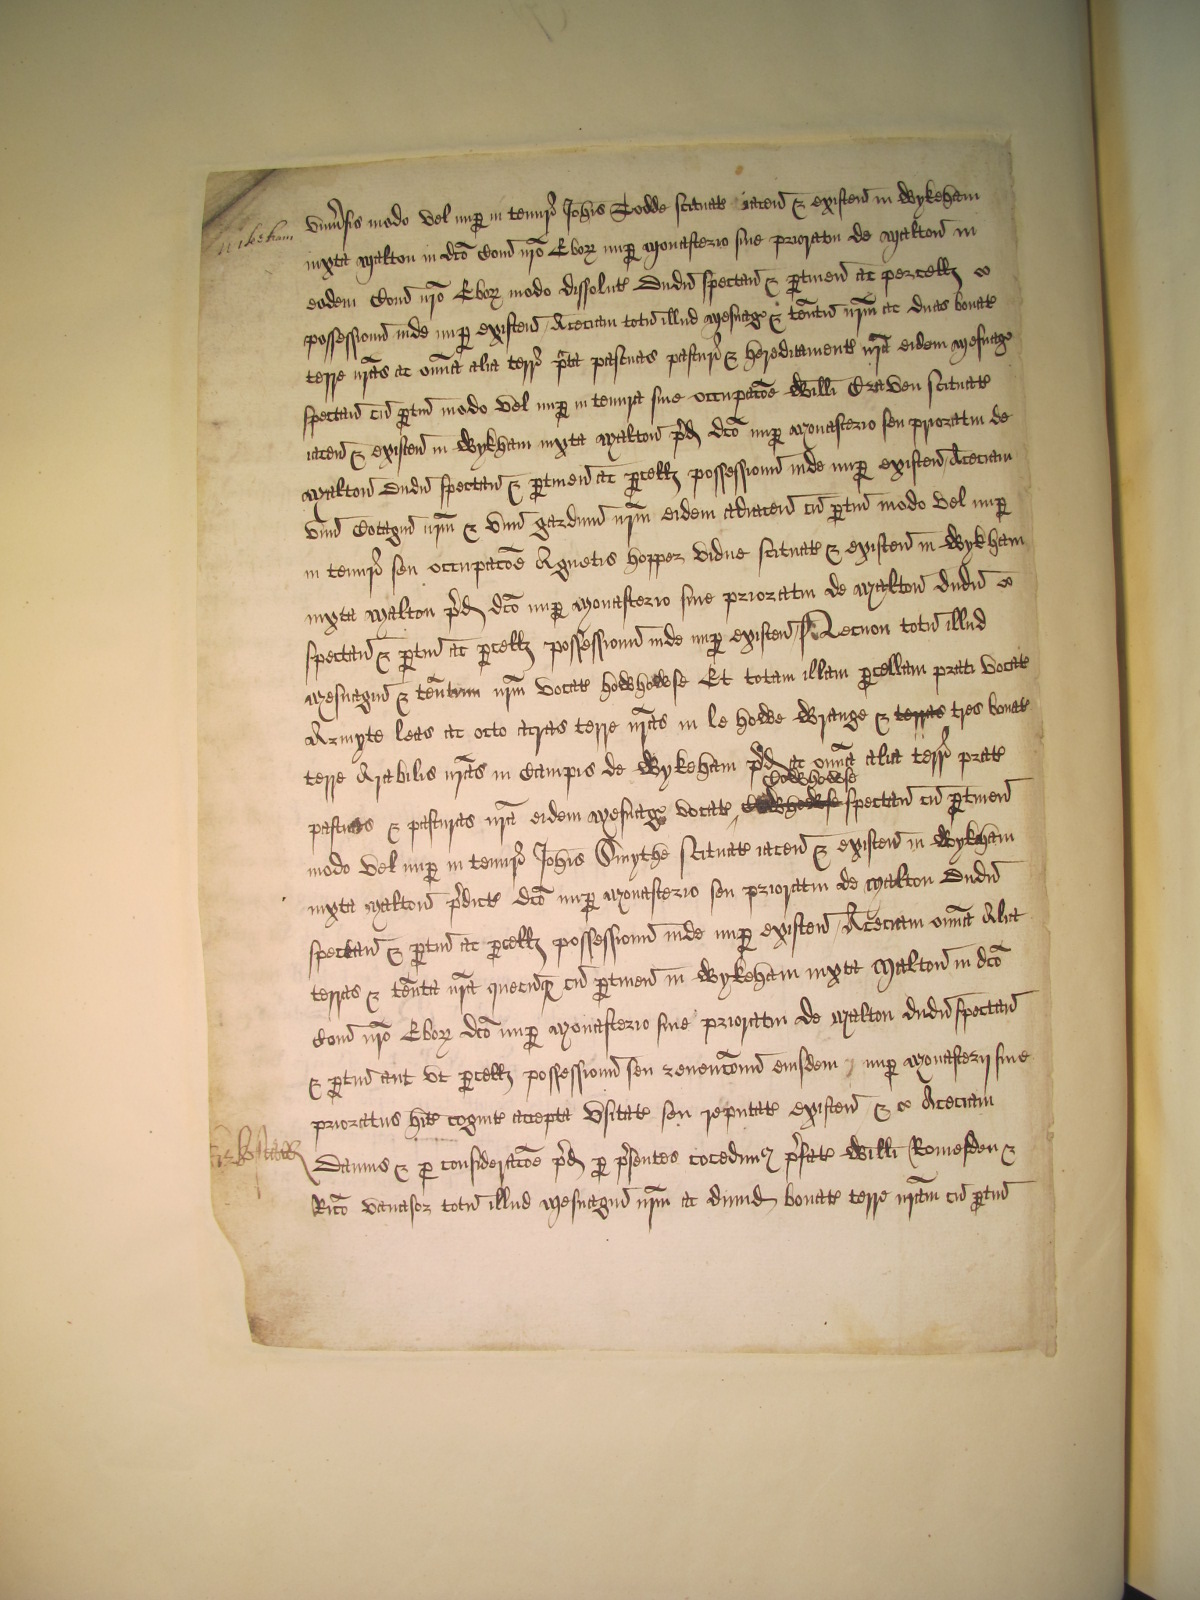 Wikeham
Univsis modo vel nup in tenur Johis Dodde scituat iacen & existen in Wykeham
iuxta Malton in dco Com nro Ebor nup Monasterio sive prioratu de Malton in
eodem Com nro Ebor modo dissolut dudu spectan & ptinen ac percell
possessionu inde nup existen Aceciam totu illud Mesuag & tentu nrm ac duas bovat
terre nras ac omia alia terr pta pascuas pastur & hereditament nra eidem Mesuag
spectan cu ptin modo vel nup in tenura sive occupacoe Willi Craven scituat
iacen & existen in Wykham iuxta Malton pd dco nup Monasterio seu prioratu de
Malton dudu spectan & ptinen ac pcell possessionu inde nup existen Aceciam
unu Cotagiu nrm & unu gardinu nrm eidem adiacen cu ptin modo vel nup
in tenur seu occupacoe Agnetis Hopper vidue scituat & existen in Wykham
iuxta Malton pd dco nup Monasterio sive prioratu de Malton dudu
spectan & ptin ac pcell possessionu inde nup existen Necnon totu illud
Mesuagiu & tentum nrm vocat howhowse Et totam illam pcellam prati vocat
Armyte leas ac octo acras terre nras in le howe Wrange & terras tres bovat
terre Arabilis nras in Campis de Wykeham pd ac omia alia terr prat
Cowhowse
pascuas & pasturas nra eidem Mesuag vocat spectan cu ptinen
modo vel nup in tenur Johis Smythe scituat iacen & existen in Wykham
iuxta Malton pdict dco nup Monasterio seu prioratu de Malton dudu
spectan & ptin ac pcell possessionu inde nup existen Aceciam omia Alia
terras & tenta nra quecuq cu ptinen in Wykeham iuxta Malton in dco
Com nro Ebor dco nup Monasterio sive prioratu de Malton dudu spectan
& ptin aut ut pcell possessionu seu revencionu eiusdem nup Monasterij sive
prioratus hit cognit accepta usitat seu reputat existen & Aceciam
Damus & p consideracoe pd p psentes cocedim pfat Willi Romesden &
Rico vavasor totu illud Mesuagiu nrm ac dimid bovat terre nram cu ptin